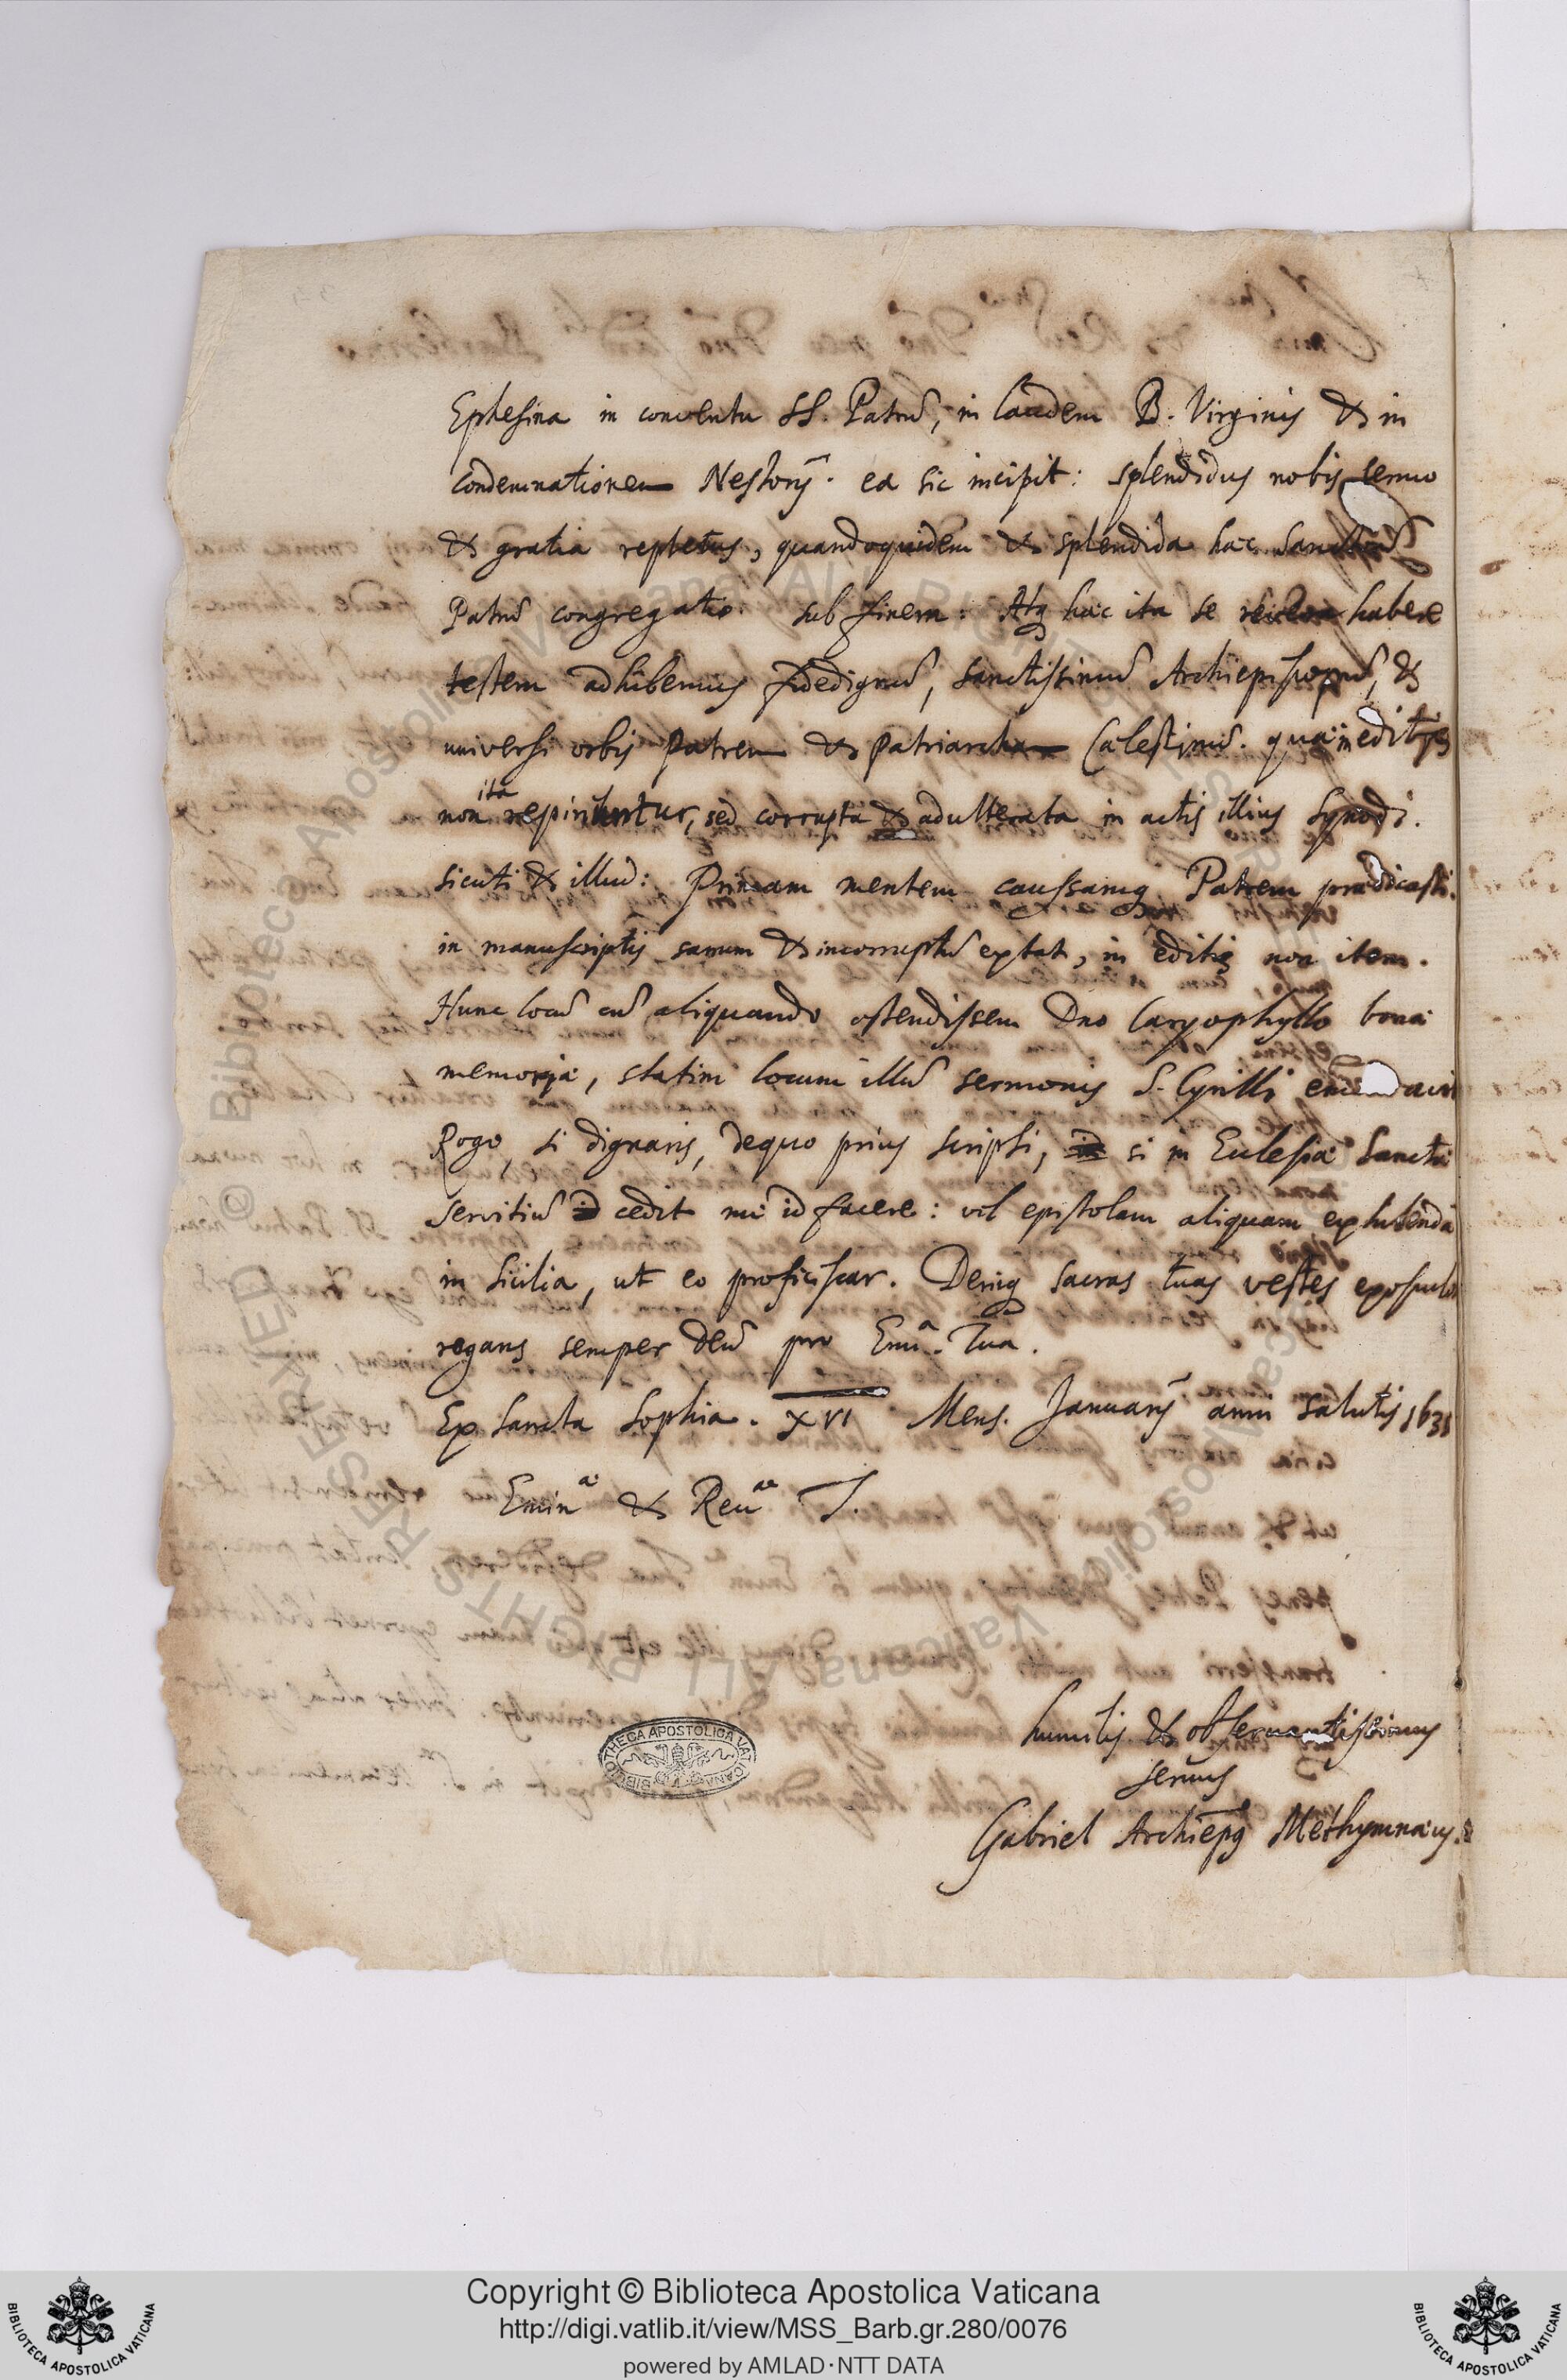 Ephesina in conventu SS. Patrũ, in laudem B. Virginis & in
condemnationem Nestorij. ea sic incipit: splendidus nobis sermo
& gratia repletus, quandoquidem & splendida hæc Sanctorũ
Patrũ congregatio. sub finem: Atq hæc ita se habere
testem adhibemus fidedignũ, sanctissimũ Archiepiscopũ, &
universi orbis Patrem & Patriarcham Cælestinũ. quæ in editis
non ita repiriuntur, sed corrupta & adulterata in actis illius Synodi.
sicuti & illud: Primam mentem caussamq Patrem prædicasti.
in manuscriptis sanum & incorruptũ extat, in editis non item.
Hunc locũ cũ aliquando ostendissem Dno Caryophyllo bonæ
memoriæ, statim locum illũ sermonis S. Cyrilli emendavit
Rogo, si dignaris, dequo prius scripsi, si in Ecclesiæ Sanctæ
servitiũ cedit me id facere: vel epistolam aliquam exhibendã
in Sicilia, ut eo proficiscar. Deniq sacras tuas vestes exosculor
rogans semper Deũ pro Emã. Tua.
Ex Sancta Sophia. XVI Mens. Januarij anni salutis 1631
Eminæ & Reuæ T.
humilis & observantissimus
servus
Gabriel Archiepq Methymnæus.
BIBLIOTHECA APOSTOLICA VATICANA
© Biblioteca Apostolica Vaticana ALL RIGHTS RESERVED
Copyright © Biblioteca Apostolica Vaticana
http://digi.vatlib.it/view/MSS_Barb.gr.280/0076
powered by AMLAD·NTT DATA
BIBLIOTECA APOSTOLICA VATICANA
BIBLIOTECA APOSTOLICA VATICANA